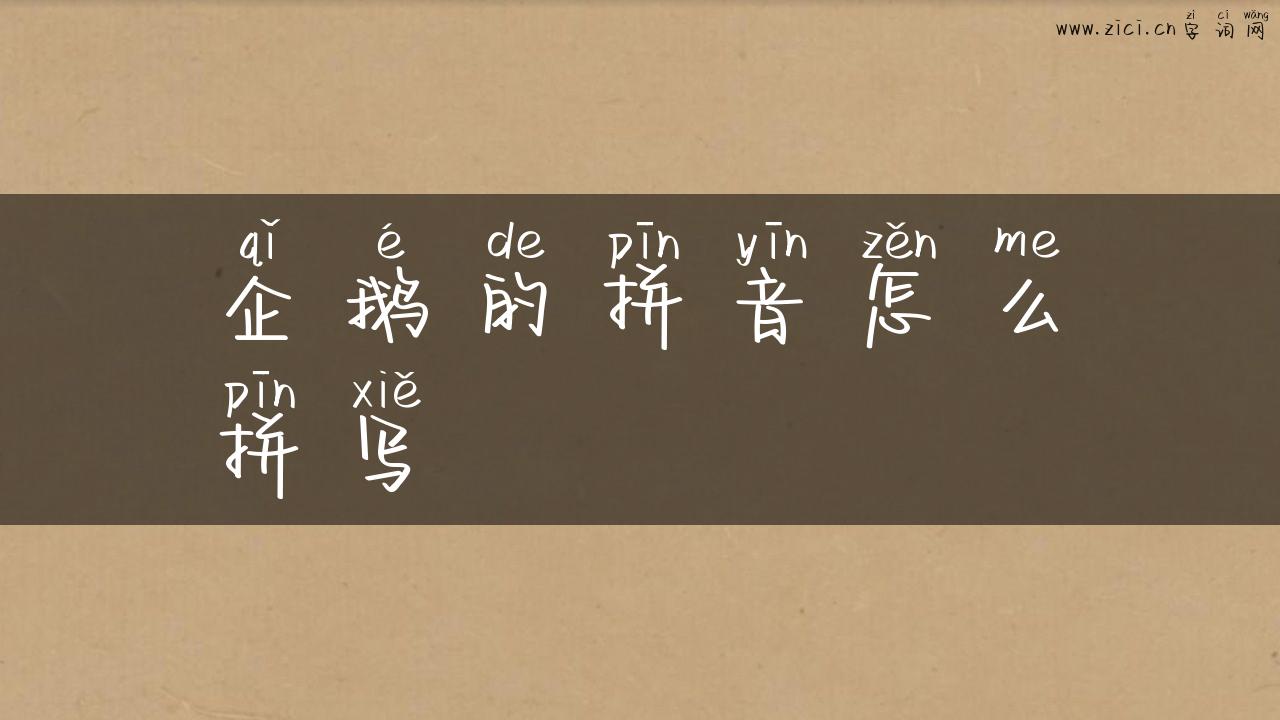 zì cí wǎng
www.zici.cn 字 词 网
qǐ é de pīn yīn zěn me
企 鹅 的 拼 音 怎 么
pīn xiě
拼 写